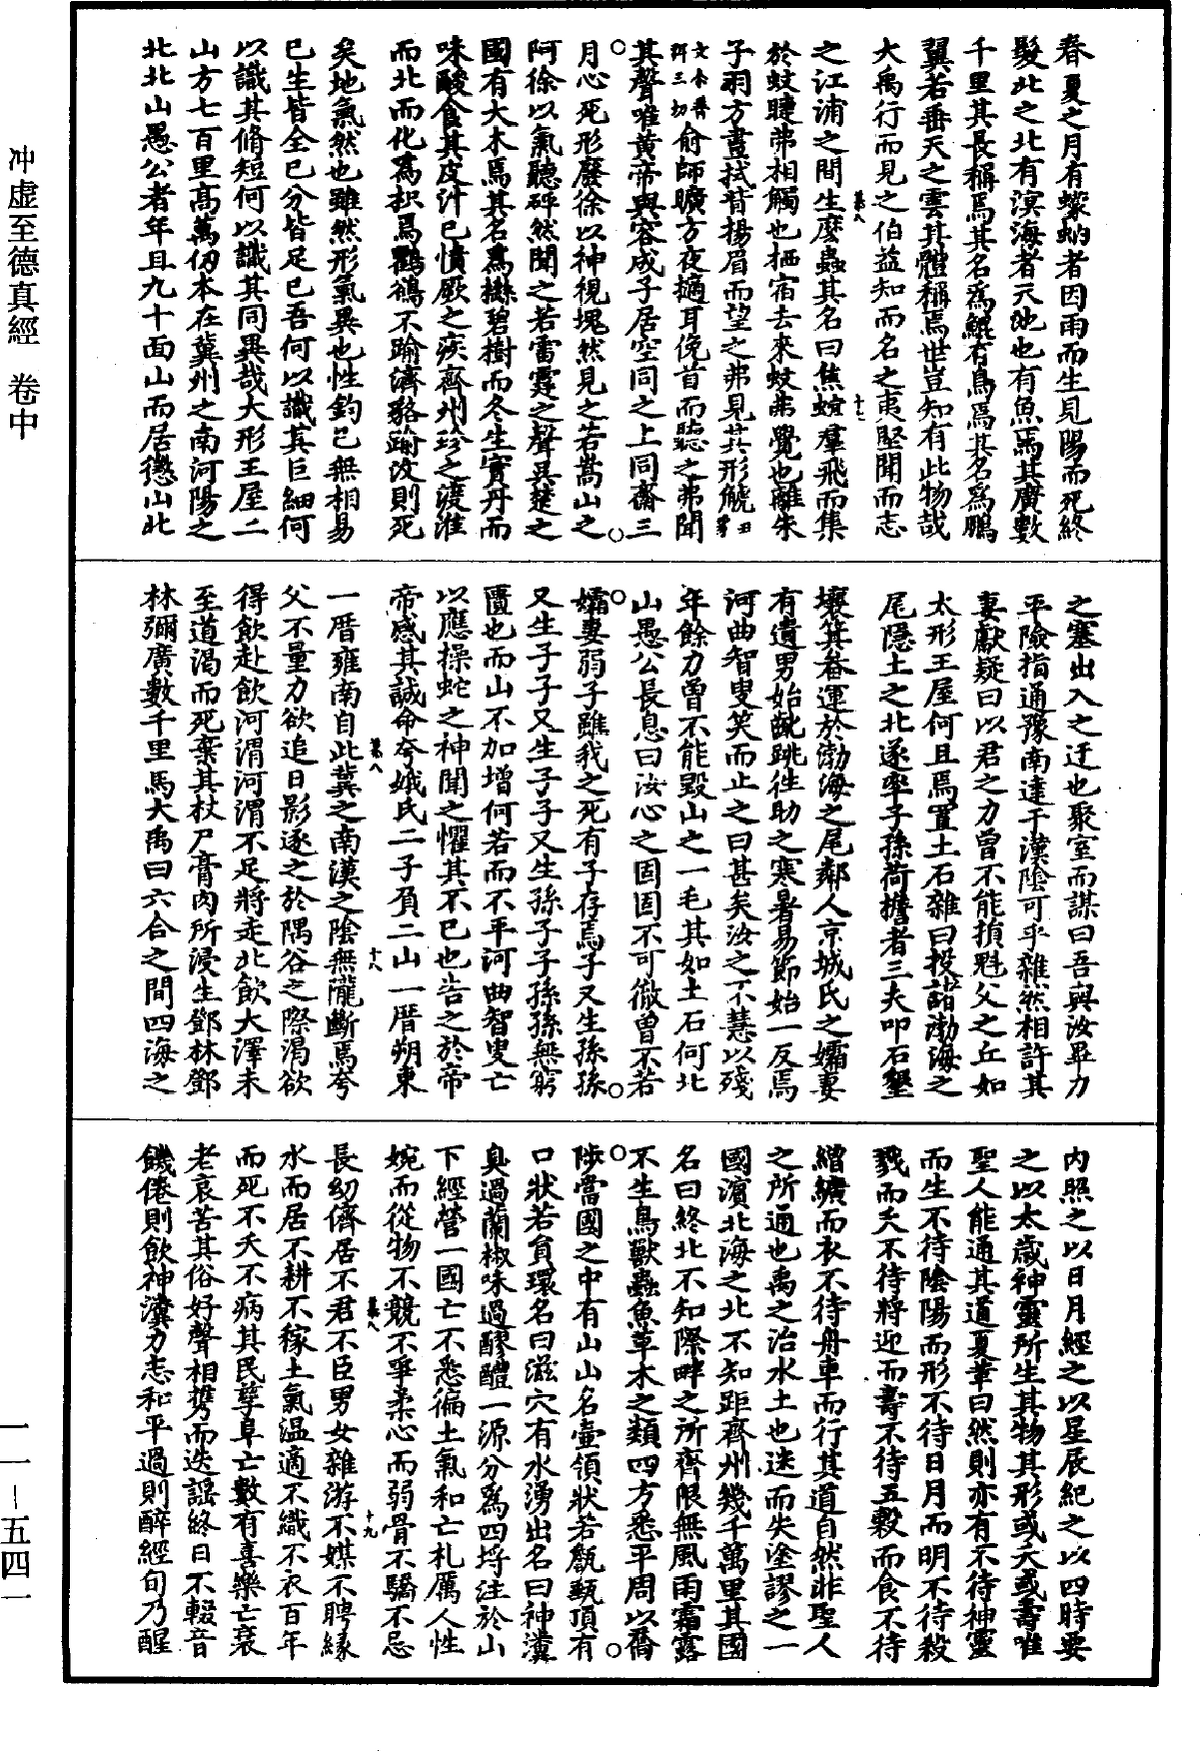 春夏之月有蠓蚋者因雨而生見陽而死終
髮北之北有溟海者天池也有魚焉其廣數
千里其長稱焉其名爲鯤有鳥焉其名爲鵬
翼若垂天之雲其體稱焉世豈知有此物哉
大禹行而見之伯益知而名之夷堅聞而志
之江浦之間生麽蟲其名曰焦螟羣飛而集
於蚊睫弗相觸也栖宿去來蚊弗覺也離朱
子羽方晝拭眥揚眉而望之弗見其形䚦
俞師曠方夜擿耳俛首而聽之弗聞
其聲唯黄帝與容成子居空同之上同齋三
月心死形廢徐以神視塊然見之若嵩山之
阿徐以氣聽砰然聞之若雷霆之聲吳楚之
國有大木焉其名爲櫾碧樹而冬生實丹而
味酸食其皮汁已憤厥之疾齊州珍之渡淮
而北而化爲枳焉鸜鵒不踰濟貉踰汶則死
矣地氣然也雖然形氣異也性鈞已無相易
已生皆全已分皆足已吾何以識其巨細何
以識其脩短何以識其同異哉大形王屋二
山方七百里高萬仞本在冀州之南河陽之
北北山愚公者年且九十面山而居懲山北
之塞出入之迂也聚室而謀曰吾與汝畢力
平險指通豫南達于漢陰可乎雜然相許其
妻獻疑曰以君之力曾不能損魁父之丘如
太形王屋何且焉置土石雜曰投諸渤海之
尾隱土之北遂率子孫荷擔者三夫叩石墾
壤箕畚運於渤海之尾鄰人京城氏之孀妻
有遺男始齓跳往助之寒暑易節始一反焉
河曲智叟笑而止之曰甚矣汝之不慧以殘
年餘力曾不能毀山之一毛其如土石何北
山愚公長息曰汝心之固固不可徹曾不若
孀妻弱子雖我之死有子存焉子又生孫孫
又生子子又生子子又生孫子子孫孫無窮
匱也而山不加增何若而不平河曲智叟亡
以應操蛇之神聞之懼其不已也告之於帝
帝感其誠命夸娥氏二子負二山一厝朔東
一厝雍南自此冀之南漢之陰無隴斷焉夸
父不量力欲追日影逐之於隅谷之際渴欲
得飲赴飲河渭河渭不足將走北飲大澤未
至道渴而死棄其杖尸膏肉所浸生鄧林鄧
林彌廣數千里焉大禹曰六合之間四海之
内照之以日月經之以星辰紀之以四時要
之以太歲神靈所生其物其形或夭或壽唯
聖人能通其道夏革曰然則亦有不待神靈
而生不待陰陽而形不待日月而明不待殺
戮而夭不待將迎而壽不待五穀而食不待
繒纊而衣不待舟車而行其道自然非聖人
之所通也禹之治水土也迷而失塗謬之一
國濱北海之北不知距齊州幾千萬里其國
名曰終北不知際畔之所齊限無風雨霜露
不生鳥獸蟲魚草木之類四方悉平周以喬
陟當國之中有山山名壺領狀若甔甀頂有
口狀若負環名曰滋穴有水湧出名曰神瀵
臭過蘭椒味過醪醴一源分爲四埒注於山
下經營一國亡不悉徧土氣和亡札厲人性
婉而從物不競不爭柔心而弱骨不驕不忌
長幼儕居不君不臣男女雜游不媒不聘緣
水而居不耕不稼土氣温適不織不衣百年
而死不夭不病其民孳阜亡數有喜樂亡衰
老哀苦其俗好聲相攜而迭謡終日不輟音
饑倦則飲神瀵力志和平過則醉經旬乃醒
冲虛至德真經 卷中
一一－五四一